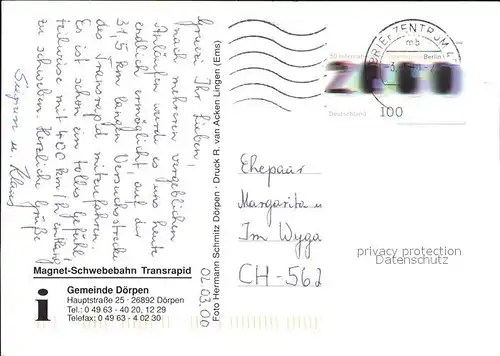 Gruezi Ihr Lieben,
nach mehreren vergeblichen
Anläufen wurde es uns heute
endlich ermöglicht, auf der
31,5 km langen Versuchsstrecke
des Transrapid mitzufahren.
Es ist schon ein tolles Gefühl,
teilweise mit 400 km/h entlang
zu schweben. Herzliche Grüße
Siegrun u. Klaus
02.03.00
Magnet-Schwebebahn Transrapid
i
Gemeinde Dörpen
Hauptstraße 25 · 26892 Dörpen
Tel.: 0 49 63 - 40 20, 12 29
Telefax: 0 49 63 - 4 02 30
Foto Hermann Schmitz Dörpen · Druck R. van Acken Lingen (Ems)
BRIEFZENTRUM
mb
Berlin
2000
Deutschland
100
Ehepaar
Margarita u
Im Wyga
CH-562
privacy protection
Datenschutz